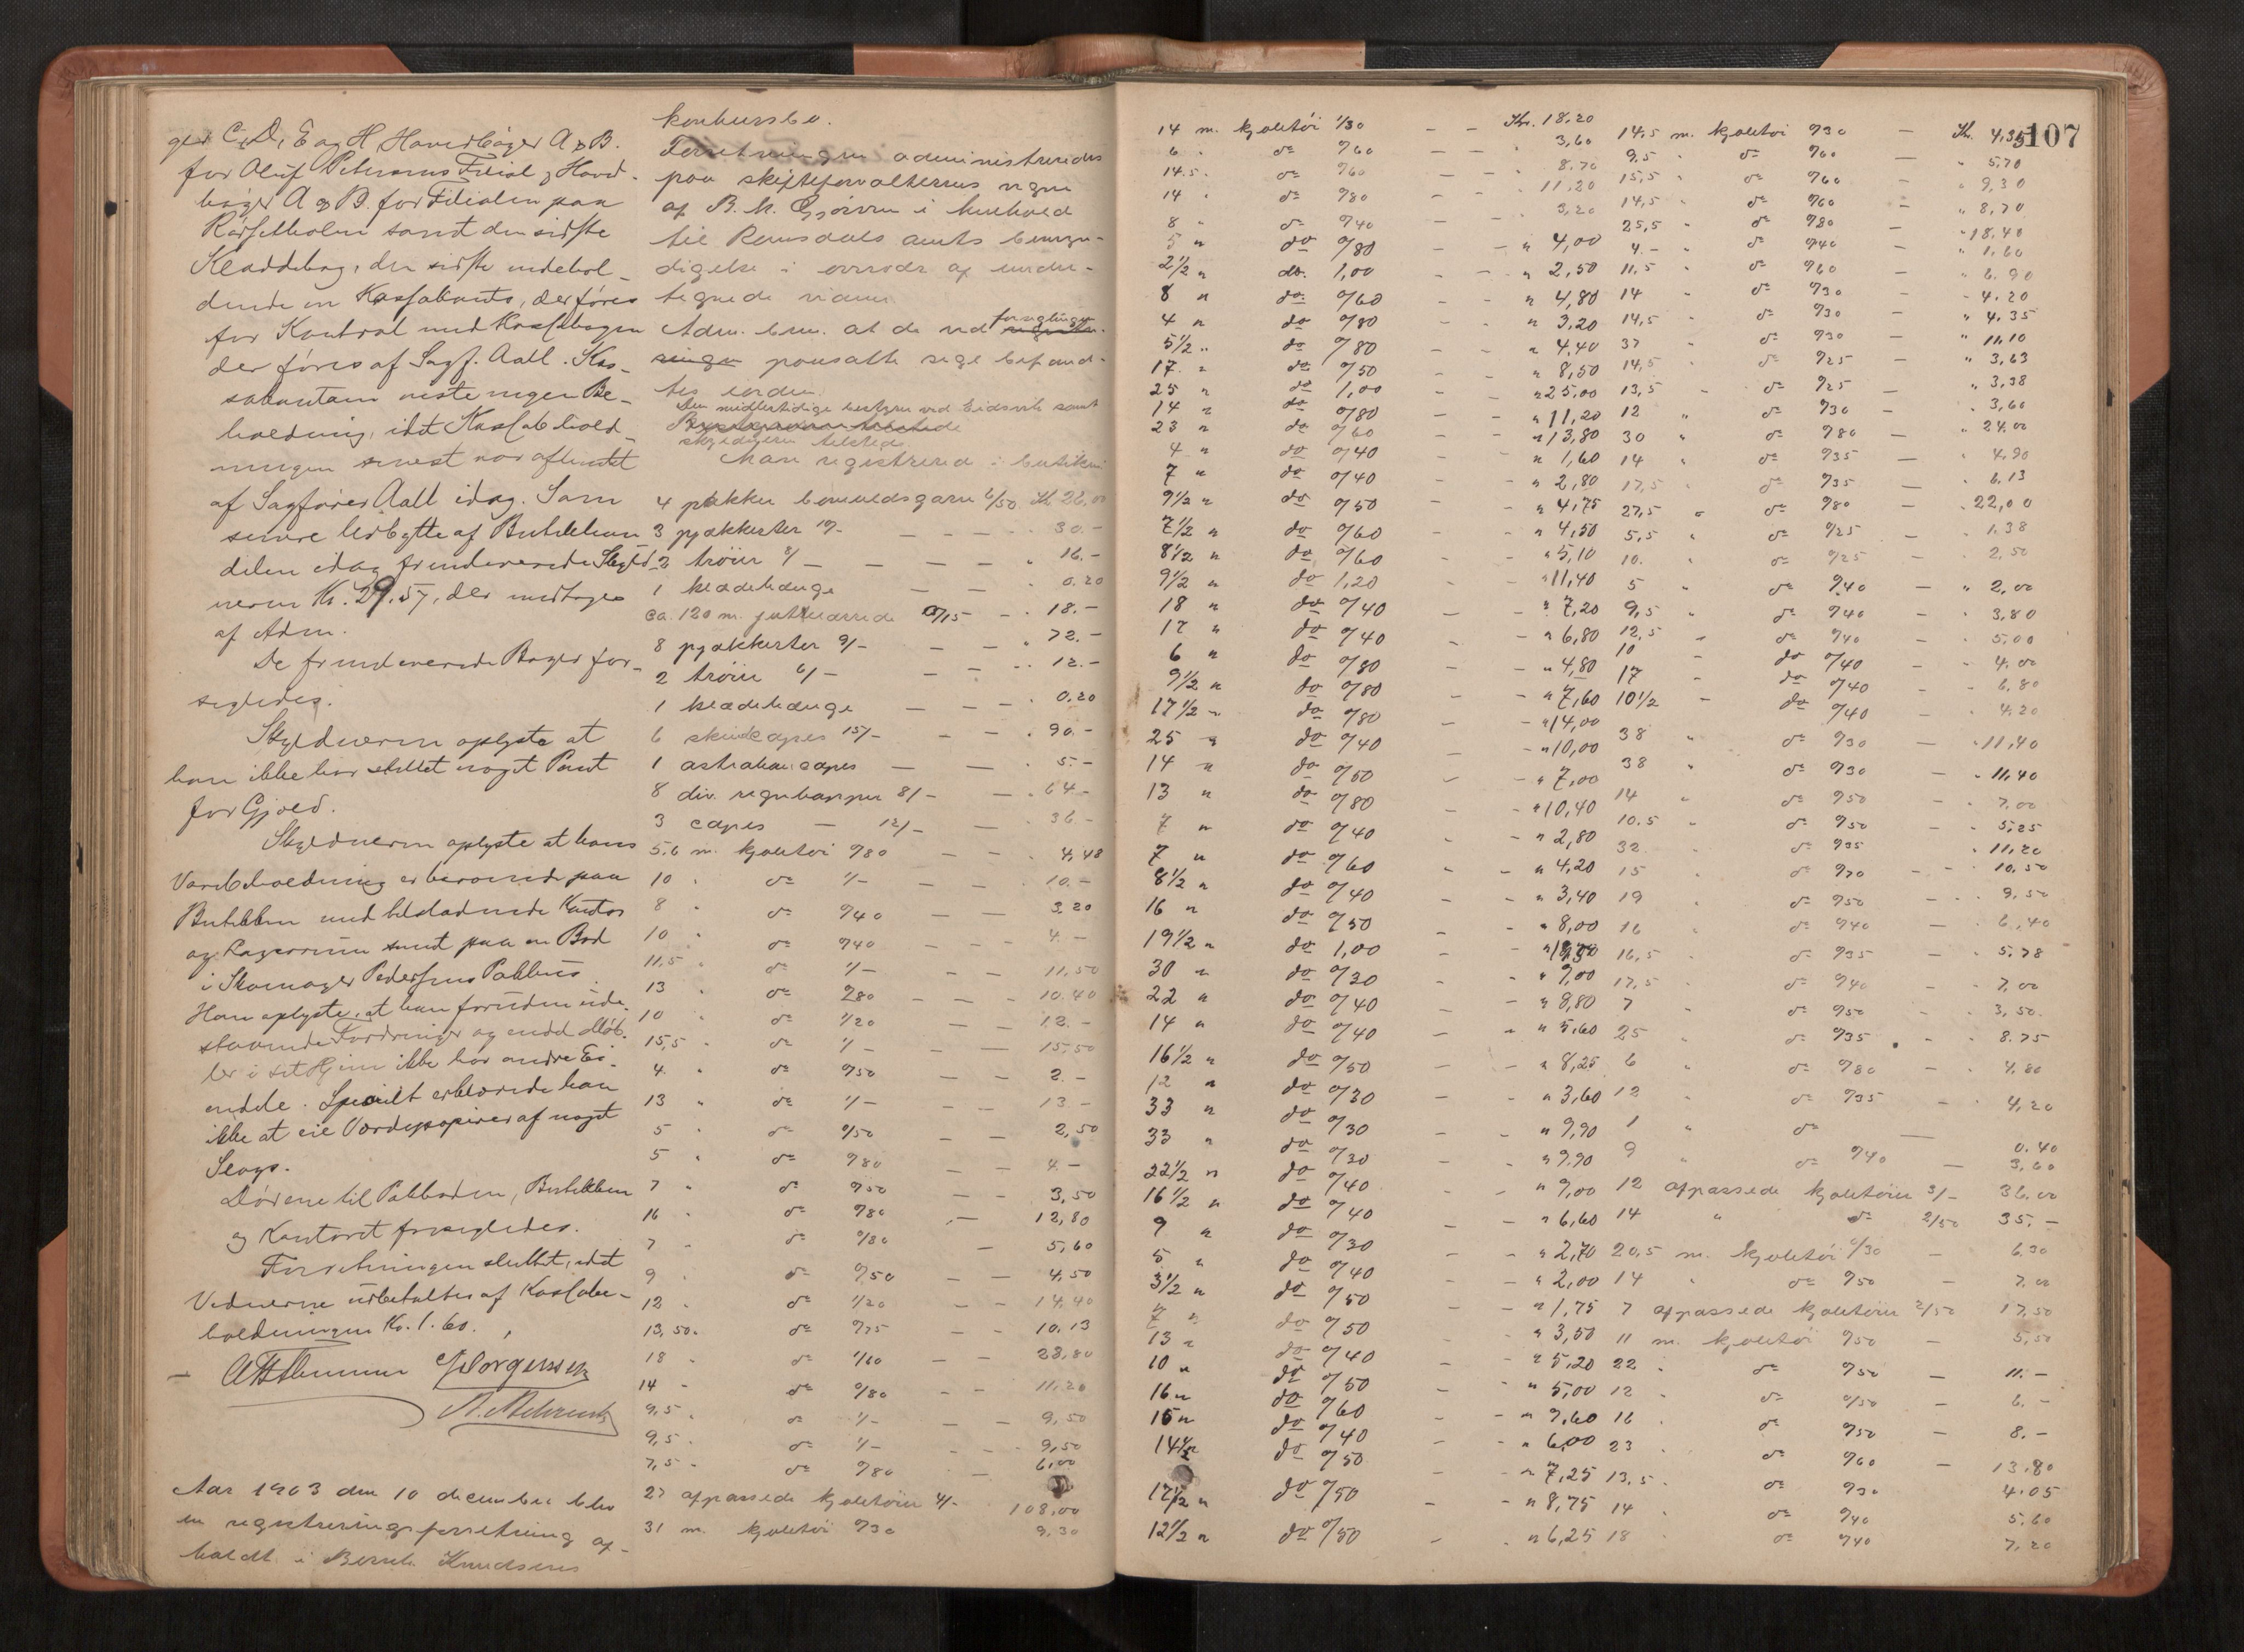 ger C, D, E og H, Hovedbøger A & B.
for Oluf Petersens Filial og Hoved-
bøger A og B. for Filialen paa
samt den sidste
Kladdebog, den sidste indehol-
dende en Kassakonto, der føres
for Kontrol med Kassabogen
der føres af Sagf. Aall. Kas-
sakontoen viste ingen Be-
holdning, idet Kassabehold-
ningen senest var afhentet
af Sagfører Aall idag. Som
senere Udbytte af Butikkhan-
delen idag fremleverede Skyld-
neren Kr. 29.57, der modtoges
af Adm.
De fremleverede Bøger for-
segledes.
Skyldneren oplyste at
han ikke har stillet noget Pant
for Gjæld.
Skyldneren oplyste at hans
Varebeholdning er beroende paa
Butikken med tilstødende Kontor
og Lagerrum samt paa en Bod
i Skomager Pedersens Pakhus.
Han oplyste, at han foruden ude-
staaende Fordringer og endel Møb-
ler i sit Hjem ikke har andre Ei-
endele. Specielt erklærede han
ikke at eie Værdipapirer af noget
Slags.
Dørene til Pakboden, Butikken
og Kontoret forsegledes.
Forretningen sluttet, idet
Vidnerne udbetaltes af Kassabe-
holdningen Kr. 1.60.
Jørgensen
Aar 1903 den 10 december blev
en registreringsforretning af-
holdt i Bernh. Knudsens
konkursbo.
Forretningen administreredes
paa skifteforvalterens vegne
af B. K. i henhold
til Romsdals amts bemyn-
digelse i overvær af under-
tegnede vidner.
Adm. bem. at de ved forseglingen
paasatte segl befand-
tes i orden.
Den midlertidige bestyrer ved Eidsvik samt
skyldneren tilstede.
Man registrerede i butikken
4 pakker bomuldsgarn 6/50 Kr. 26,00
3 pjækkerter 10/- — 30.-
2 trøier 8/- — 16.-
1 klædehænge — 0.20
ca. 120 m. 0/15 — 18.-
8 pjækkerter 9/- — 72.-
2 trøier 6/- — 12.-
1 klædehænge — 0.20
6 skindcapes 15/- — 90.-
1 astrakan capes — 5.-
8 div. regnkapper 8/- — 64.-
3 capes — 12/- — 36.-
5.6 m. kjoletøi 0/80 — 4,48
10 " do 1/- — 10.-
8 " do 0/40 — 3.20
10 " do 0/40 — 4.-
11,5 " do 1/- — 11,50
13 " do 0/80 — 10.40
10 " do 1/20 — 12.-
15,5 " do 1/- — 15.50
4 " do 0/50 — 2.-
13 " do 1/- — 13.-
5 " do 0/50 — 2,50
5 " do 0/80 — 4.-
7 " do 0/50 — 3,50
16 " do 0/80 — 12,80
7 " do 0/80 — 5,60
9 " do 0/50 — 4,50
12 " do 1/20 — 14,40
13,50 " do 0/75 — 10.13
18 " do 1/60 — 28.80
14 " do 0/80 — 11.20
9,5 " do 1/- — 9,50
9,5 " do 1/- — 9,50
7,5 " do 0/80 — 6,00
27 afpassede kjoletøier 4/- 108,00
31 m. kjoletøi 0/30 9.30
107
14 m. kjoletøi 1/30 — Kr. 18.20
6 " do 0/60 — " 3,60
14.5 " do 0/60 — " 8.70
14 " do 0/80 — " 11,20
8 " do 0/40 — 3,20
5 " do 0/80 — " 4,00
2 1/2 " do. 1,00 — " 2,50
8 " do 0/60 — " 4,80
4 " do 0/80 — " 3,20
5 1/2 " do 0/80 — " 4.40
17 " do 0/50 — " 8,50
25 " do 1,00 — " 25,00
14 " do 0/80 — " 11,20
23 " do 0/60 — " 13,80
4 " do 0/40 — " 1,60
7 " do 0/40 — " 2,80
9 1/2 " do 0/50 — " 4,75
7 1/2 " do 0/60 — " 4,50
8 1/2 " do 0/60 — " 5,10
9 1/2 " do 1,20 — " 11,40
18 " do 0/40 — " 7,20
17 " do 0/40 — " 6,80
6 " do 0/80 — " 4,80
9 1/2 " do 0/80 — " 7,60
17 1/2 " do 0/80 — " 14,00
25 " do 0/40 — " 10,00
14 " do 0/50 — " 7,00
13 " do 0/80 — " 10,40
7 " do 0/40 — " 2,80
7 " do 0/60 — " 4,20
8 1/2 " do 0/40 — " 3,40
16 " do 0/50 — " 8,00
19 1/2 " do 1,00 — " 19,50
30 " do 0/30 — " 9,00
22 " do 0/40 — " 8,80
14 " do 0/40 — " 5,60
16 1/2 " do 0/50 — " 8,25
12 " do 0/30 — " 3,60
33 " do 0/30 — " 9,90
33 " do 0/30 — " 9.90
22 1/2 " do 0/40 — " 9,00
16 1/2 " do 0/40 — " 6,60
9 " do 0/30 — " 2,70
5 " do 0/40 — " 2,00
3 1/2 " do 0/50 — " 1,75
7 " do 0/50 — " 3,50
13 " do 0/40 — " 5,20
10 " do 0/50 — " 5,00
16 " do 0/60 — " 9,60
15 " do 0/40 — " 6,00
14 1/2 " do 0/50 — " 7,25
17 1/2 " do 0/50 — " 8,75
12 1/2 " do 0/50 — " 6,25
14,5 m. kjoletøi 0/30 — Kr. 4,35
9.5 " do 0/60 — " 5,70
15,5 " do 0/60 — " 9,30
14,5 " do 0/60 — " 8,70
25,5 " do 0/80 — " 18,40
4.- " do 0/40 — " 1,60
11,5 " do 0/60 — " 6.90
14 " do 0/30 — " 4.20
14,5 " do 0/30 — " 4.35
37 " do 0/30 — " 11,10
14,5 " do 0/25 — " 3,63
13,5 " do 0/25 — " 3,38
12 " do 0/30 — " 3,60
30 " do 0/80 — " 24.00
14 " do 0/35 — " 4,90
17,5 " do 0/35 — " 6.13
27,5 " do 0/80 — " 22,00
5,5 " do 0/25 — " 1.38
10. " do 0/25 — " 2,50
5 " do 0/40 — " 2,00
9,5 " do 0/40 — " 3,80
12,5 " do 0/40 — " 5,00
10 " do 0/40 — " 4,00
17 " do 0/40 — " 6,80
10 1/2 " do 0/40 — " 4,20
38 " do 0/30 — " 11,40
38 " do 0/30 — " 11,40
14 " do 0/50 — " 7,00
10.5 " do 0/50 — " 5,25
32 " do 0/35 — " 11,20
15 " do 0/70 — " 10,50
19 " do 0/50 — " 9.50
16 " do 0/40 — " 6,40
16,5 " do 0/35 — " 5.78
17,5 " do 0/40 — " 7,00
7 " do 0/50 — " 3,50
25 " do 0/35 — " 8.75
6 " do 0/80 — " 4,80
12 " do 0/35 — " 4,20
1 " do — 0.40
9 " do 0/40 — 3,60
12 afpassede kjoletøier 3/- 36.00
14 " do 2/50 35.-
20,5 m. kjoletøi 0/30 — 6.30
14 " do 0/50 — 7.00
7 afpassede kjoletøier 2/50 17,50
11 m. kjoletøi 0/50 — 5,50
22 " do 0/50 — 11.-
12 " do 0/50 — 6.-
16 " do 0/50 — 8.-
23 " do 0/60 — 13.80
13,5 " do 0/30 4.05
14 " do 0/40 5.60
18 " do 0/40 7,20